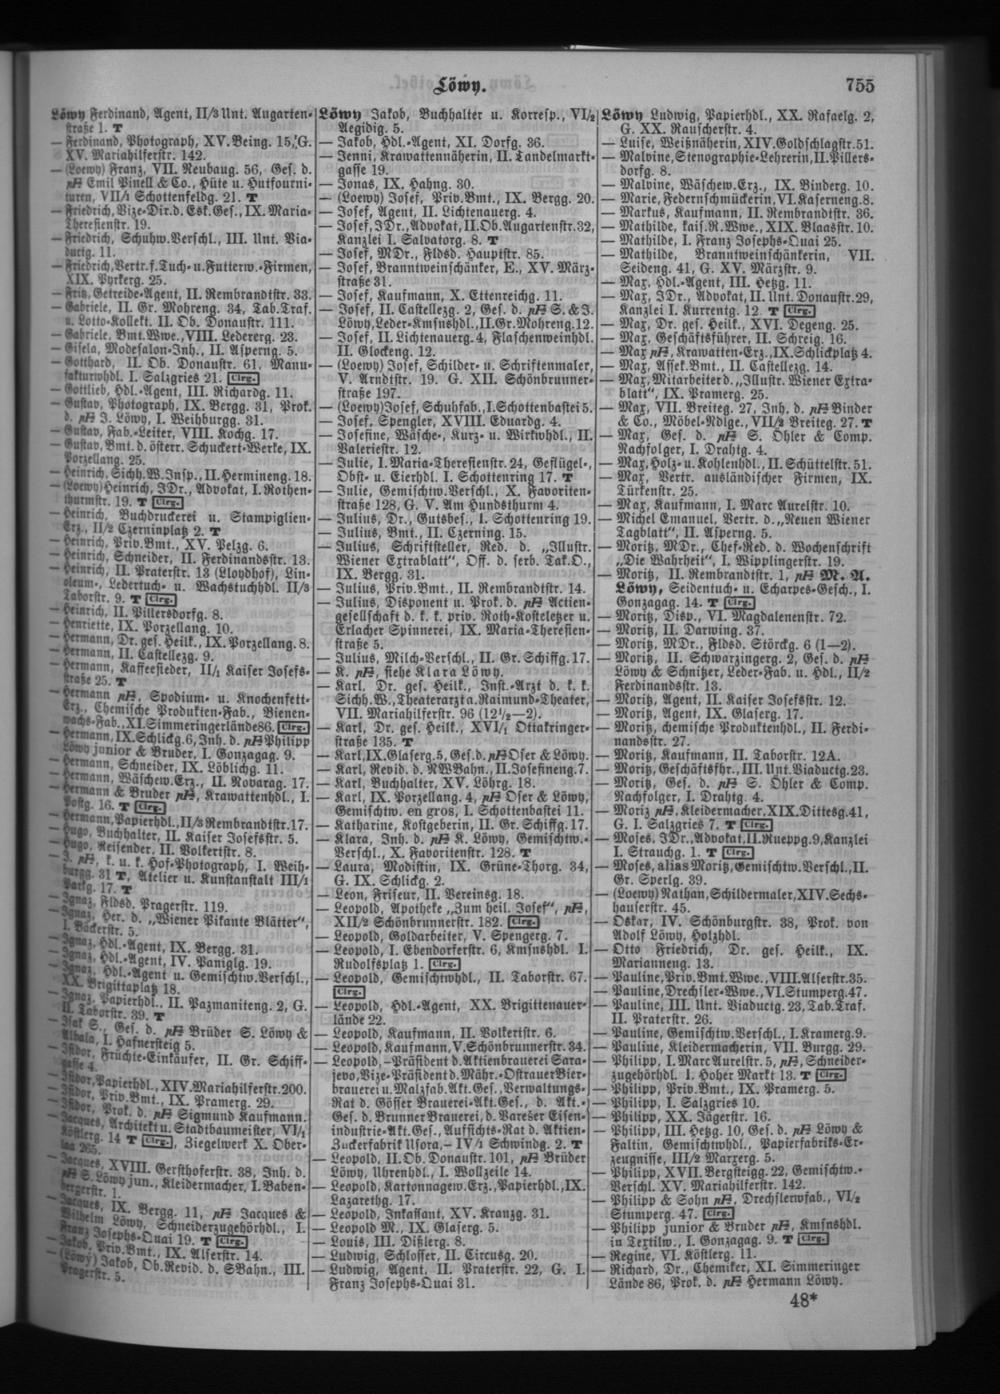 Löwy.
755
Löwy Ferdinand, Agent, II/3 Unt. Augarten-
straße 1. T
— Ferdinand, Photograph, XV. Being. 15, G.
XV. Mariahilferstr. 142.
— (Loewy) Franz, VII. Neubaug. 56, Ges. d.
Emil Pinell & Co., Hüte u. Hutfourni-
turen, VII/1 Schottenfeldg. 21. T
— Friedrich, Vize-Dir. d. Esk. Ges., IX. Maria-
Theresienstr. 19.
— Friedrich, Schuhw. Verschl., III. Unt. Via-
ductg. 11.
— Friedrich, Vertr. f. Tuch- u. Futterw.-Firmen,
XIX. Pyrkerg. 25.
— Fritz, Getreide-Agent, II. Rembrandtstr. 33.
— Gabriele, II. Gr. Mohreng. 34, Tab. Traf.
u. Lotto-Kollekt. II. Ob. Donaustr. 111.
— Gabriele, Bmt. Wwe., VIII. Ledererg. 23.
— Gisela, Modesalon-Inh., II. Asperng. 5.
— Gotthard, II. Ob. Donaustr. 61, Manu-
fakturwhdl. I. Salzgries 21. Clrg.
— Gottlieb, Hdl.-Agent, III. Richardg. 11.
— Gustav, Photograph, IX. Bergg. 31, Prok.
d. J. Löwy, I. Weihburgg. 31.
— Gustav, Fab.-Leiter, VIII. Kochg. 17.
— Gustav, Bmt. d. österr. Schuckert-Werke, IX.
Porzellang. 25.
— Heinrich, Sichh. W. Insp., II. Hermineng. 18.
— (Loewy) Heinrich, JDr., Advokat, I. Rothen-
thurmstr. 19. T Clrg.
— Heinrich, Buchdruckerei u. Stampiglien-
Erz., II/2 Czerninplatz 2. T
— Heinrich, Priv. Bmt., XV. Pelzg. 6.
— Heinrich, Schneider, II. Ferdinandsstr. 13.
— Heinrich, II. Praterstr. 13 (Lloydhof), Lin-
oleum-, Ledertuch- u. Wachstuchhdl. II/3
Taborstr. 9. T Clrg.
— Heinrich, II. Pillersdorfg. 8.
— Henriette, IX. Porzellang. 10.
— Hermann, Dr. ges. Heilk., IX. Porzellang. 8.
— Hermann, II. Castellezg. 9.
— Hermann, Kaffeesieder, II/1 Kaiser Josefs-
straße 25. T
— Hermann, Spodium- u. Knochenfett-
Erz., Chemische Produkten-Fab., Bienen-
wachs-Fab., XI. Simmeringerlände 86. Clrg.
— Hermann, IX. Schlickg. 6, Inh. d. Philipp
Löwy junior & Bruder, I. Gonzagag. 9.
— Hermann, Schneider, IX. Löblichg. 11.
— Hermann, Wäschew. Erz., II. Novarag. 17.
— Hermann & Bruder, Krawattenhdl., I.
Postg. 16. T Clrg.
— Hermann, Papierhdl., II/3 Rembrandtstr. 17.
— Hugo, Buchhalter, II. Kaiser Josefsstr. 5.
— Hugo, Reisender, II. Volkertstr. 8.
— J., k. u. k. Hof-Photograph, I. Weih-
burgg. 31 T, Atelier u. Kunstanstalt III/1
Parkg. 17. T
— Ignaz, Fldsd. Pragerstr. 119.
— Ignaz, Her. d. „Wiener Pikante Blätter“,
I. Bäckerstr. 5.
— Ignaz, Hdl.-Agent, IX. Bergg. 31.
— Ignaz, Hdl.-Agent, IV. Paniglg. 19.
— Ignaz, Hdl.-Agent u. Gemischtw. Verschl.,
XX. Brigittaplatz 18.
— Ignaz, Papierhdl., II. Pazmaniteng. 2, G.
II. Taborstr. 39. T
— Isak S., Ges. d. Brüder S. Löwy &
I. Hafnersteig 5.
— Isidor, Früchte-Einkäufer, II. Gr. Schiff-
gasse 4.
— Isidor, Papierhdl., XIV. Mariahilferstr. 200.
— Isidor, Priv. Bmt., IX. Pramerg. 29.
— Isidor, Prok. d. Sigmund Kaufmann.
— Jacques, Architekt u. Stadtbaumeister, VI/1
Köstlerg. 14 T Clrg., Ziegelwerk X. Ober-
laa 265.
— Jacques, XVIII. Gersthoferstr. 38, Inh. d.
S. Löwy jun., Kleidermacher, I. Baben-
bergerstr. 1.
— Jacques, IX. Bergg. 11, Jacques &
Wilhelm Löwy, Schneiderzugehörhdl., I.
Franz Josephs-Quai 19. T Clrg.
— Jakob, Priv. Bmt., IX. Alserstr. 14.
— (Löwy) Jakob, Ob. Revid. d. SBahn., III.
Pragerstr. 5.
Löwy Jakob, Buchhalter u. Korresp., VI/2
Aegidig. 5.
— Jakob, Hdl.-Agent, XI. Dorfg. 36.
— Jenni, Krawattennäherin, II. Tandelmarkt-
gasse 19.
— Jonas, IX. Hahng. 30.
— (Loewy) Josef, Priv. Bmt., IX. Bergg. 20.
— Josef, Agent, II. Lichtenauerg. 4.
— Josef, JDr., Advokat, II. Ob. Augartenstr. 32,
Kanzlei I. Salvatorg. 8. T
— Josef, MDr., Fldsd. Hauptstr. 85.
— Josef, Branntweinschänker, E., XV. März-
straße 31.
— Josef, Kaufmann, X. Ettenreichg. 11.
— Josef, II. Castellezg. 2, Ges. d. S. & J.
Löwy, Leder-Kmsnshdl., II. Gr. Mohreng. 12.
— Josef, II. Lichtenauerg. 4, Flaschenweinhdl.
II. Glockeng. 12.
— (Loewy) Josef, Schilder- u. Schriftenmaler,
V. Arndtstr. 19. G. XII. Schönbrunner-
straße 197.
— (Loewy) Josef, Schuhfab., I. Schottenbastei 5.
— Josef, Spengler, XVIII. Eduardg. 4.
— Josefine, Wäsche-, Kurz- u. Wirkwhdl., II.
Valeriestr. 12.
— Julie, I. Maria-Theresienstr. 24, Geflügel-,
Obst- u. Eierhdl. I. Schottenring 17. T
— Julie, Gemischtw. Verschl., X. Favoriten-
straße 128, G. V. Am Hundsthurm 4.
— Julius, Dr., Gutsbes., I. Schottenring 19.
— Julius, Bmt., II. Czerning. 15.
— Julius, Schriftsteller, Red. d. „Illustr.
Wiener Extrablatt“, Off. d. serb. Tak. O.,
IX. Bergg. 31.
— Julius, Priv. Bmt., II. Rembrandtstr. 14.
— Julius, Disponent u. Prok. d. Actien-
gesellschaft d. k. k. priv. Roth-Kosteletzer u.
Erlacher Spinnerei, IX. Maria-Theresien-
straße 5.
— Julius, Milch-Verschl., II. Gr. Schiffg. 17.
— K., siehe Klara Löwy.
— Karl, Dr. ges. Heilk., Inst.-Arzt d. k. k.
Sichh. W., Theaterarzt a. Raimund-Theater,
VII. Mariahilferstr. 96 (12½—2).
— Karl, Dr. ges. Heilk., XVI/1 Ottakringer-
straße 135. T
— Karl, IX. Glaserg. 5, Ges. d. Oser & Löwy.
— Karl, Revid. d. NWBahn., II. Josefineng. 7.
— Karl, Buchhalter, XV. Löhrg. 18.
— Karl, IX. Porzellang. 4, Oser & Löwy,
Gemischtw. en gros, I. Schottenbastei 11.
— Katharine, Kostgeberin, II. Gr. Schiffg. 17.
— Klara, Inh. d. K. Löwy, Gemischtw.-
Verschl., X. Favoritenstr. 128. T
— Laura, Modistin, IX. Grüne-Thorg. 34,
G. IX. Schlickg. 2.
— Leon, Friseur, II. Vereinsg. 18.
— Leopold, Apotheke „Zum heil. Josef“,
XII/2 Schönbrunnerstr. 182. Clrg.
— Leopold, Goldarbeiter, V. Spengerg. 7.
— Leopold, I. Ebendorferstr. 6, Kmsnshdl. I.
Rudolfsplatz 1. Clrg.
— Leopold, Gemischtwhdl., II. Taborstr. 67.
Clrg.
— Leopold, Hdl.-Agent, XX. Brigittenauer-
lände 22.
— Leopold, Kaufmann, II. Volkertstr. 6.
— Leopold, Kaufmann, V. Schönbrunnerstr. 34.
— Leopold, -Präsident d. Aktienbrauerei Sara-
jevo, Vize-Präsident d. Mähr.-Ostrauer Bier-
brauerei u. Malzfab. Akt. Ges., Verwaltungs-
Rat d. Gösser Brauerei-Akt. Ges., d. Akt.-
Ges. d. Brunner Brauerei, d. Vareser Eisen-
industrie-Akt. Ges., Aufsichts-Rat d. Aktien-
Zuckerfabrik Usora, – IV/1 Schwindg. 2. T
— Leopold, II. Ob. Donaustr. 101, Brüder
Löwy, Uhrenhdl., I. Wollzeile 14.
— Leopold, Kartonnagew. Erz., Papierhdl., IX.
Lazarethg. 17.
— Leopold, Inkassant, XV. Kranzg. 31.
— Leopold M., IX. Glaserg. 5.
— Louis, III. Dißlerg. 8.
— Ludwig, Schlosser, II. Circusg. 20.
— Ludwig, Agent, II. Praterstr. 22, G. I.
Franz Josephs-Quai 31.
Löwy Ludwig, Papierhdl., XX. Rafaelg. 2,
G. XX. Rauscherstr. 4.
— Luise, Weißnäherin, XIV. Goldschlagstr. 51.
— Malvine, Stenographie-Lehrerin, II. Pillers-
dorfg. 8.
— Malvine, Wäschew. Erz., IX. Binderg. 10.
— Marie, Federnschmückerin, VI. Kaserneng. 8.
— Markus, Kaufmann, II. Rembrandtstr. 36.
— Mathilde, kais. R. Wwe., XIX. Blaasstr. 10.
— Mathilde, I. Franz Josephs-Quai 25.
— Mathilde, Branntweinschänkerin, VII.
Seideng. 41, G. XV. Märzstr. 9.
— Max, Hdl.-Agent, III. Hetzg. 11.
— Max, JDr., Advokat, II. Unt. Donaustr. 29,
Kanzlei I. Kurrentg. 12. T Clrg.
— Max, Dr. ges. Heilk., XVI. Degeng. 25.
— Max, Geschäftsführer, II. Schreig. 16.
— Max, Krawatten-Erz., IX. Schlickplatz 4.
— Max, Assek. Bmt., II. Castellezg. 14.
— Max, Mitarbeiter d. „Illustr. Wiener Extra-
blatt“, IX. Pramerg. 25.
— Max, VII. Breiteg. 27, Inh. d. Binder
& Co., Möbel-Ndlge., VII/2 Breiteg. 27. T
— Max, Ges. d. S. Öhler & Comp.
Nachfolger, I. Drahtg. 4.
— Max, Holz- u. Kohlenhdl., II. Schüttelstr. 51.
— Max, Vertr. ausländischer Firmen, IX.
Türkenstr. 25.
— Max, Kaufmann, I. Marc Aurelstr. 10.
— Michel Emanuel, Vertr. d. „Neuen Wiener
Tagblatt“, II. Asperng. 5.
— Moritz, MDr., Chef-Red. d. Wochenschrift
„Die Wahrheit“, I. Wipplingerstr. 19.
— Moritz, II. Rembrandtstr. 1, M. A.
Löwy, Seidentuch- u. Echarpes-Gesch., I.
Gonzagag. 14. T Clrg.
— Moritz, Disp., VI. Magdalenenstr. 72.
— Moritz, II. Darwing. 37.
— Moritz, MDr., Fldsd. Störckg. 6 (1—2).
— Moritz, II. Schwarzingerg. 2, Ges. d.
Löwy & Schnitzer, Leder-Fab. u. Hdl., II/2
Ferdinandsstr. 13.
— Moritz, Agent, II. Kaiser Josefsstr. 12.
— Moritz, Agent, IX. Glaserg. 17.
— Moritz, chemische Produktenhdl., II. Ferdi-
nandsstr. 27.
— Moritz, Kaufmann, II. Taborstr. 12A.
— Moritz, Geschäftsfhr., III. Unt. Viaductg. 23.
— Moritz, Ges. d. S. Öhler & Comp.
Nachfolger, I. Drahtg. 4.
— Moriz, Kleidermacher, XIX. Dittesg. 41,
G. I. Salzgries 7. T Clrg.
— Moses, JDr., Advokat, II. Rueppg. 9, Kanzlei
I. Strauchg. 1. T Clrg.
— Moses, alias Moritz, Gemischtw. Verschl., II.
Gr. Sperlg. 39.
— (Loewy) Nathan, Schildermaler, XIV. Sechs-
hauserstr. 45.
— Oskar, IV. Schönburgstr. 38, Prok. von
Adolf Löwy, Holzhdl.
— Otto Friedrich, Dr. ges. Heilk., IX.
Marianneng. 13.
— Pauline, Priv. Bmt. Wwe., VIII. Alserstr. 35.
— Pauline, Drechsler-Wwe., VI. Stumperg. 47.
— Pauline, III. Unt. Viaductg. 23, Tab. Traf.
II. Praterstr. 26.
— Pauline, Gemischtw. Verschl., I. Kramerg. 9.
— Pauline, Kleidermacherin, VII. Burgg. 29.
— Philipp, I. Marc Aurelstr. 5, Schneider-
zugehörhdl. I. Hoher Markt 13. T Clrg.
— Philipp, Priv. Bmt., IX. Pramerg. 5.
— Philipp, I. Salzgries 10.
— Philipp, XX. Jägerstr. 16.
— Philipp, III. Hetzg. 10, Ges. d. Löwy &
Faltin, Gemischtwhdl., Papierfabriks-Er-
zeugnisse, III/2 Marxerg. 5.
— Philipp, XVII. Bergsteigg. 22, Gemischtw.-
Verschl. XV. Mariahilferstr. 142.
— Philipp & Sohn, Drechslerwfab., VI/2
Stumperg. 47. Clrg.
— Philipp junior & Bruder, Kmsnshdl.
in Textilw., I. Gonzagag. 9. T Clrg.
— Regine, VI. Köstlerg. 11.
— Richard, Dr., Chemiker, XI. Simmeringer
Lände 86, Prok. d. Hermann Löwy.
48*